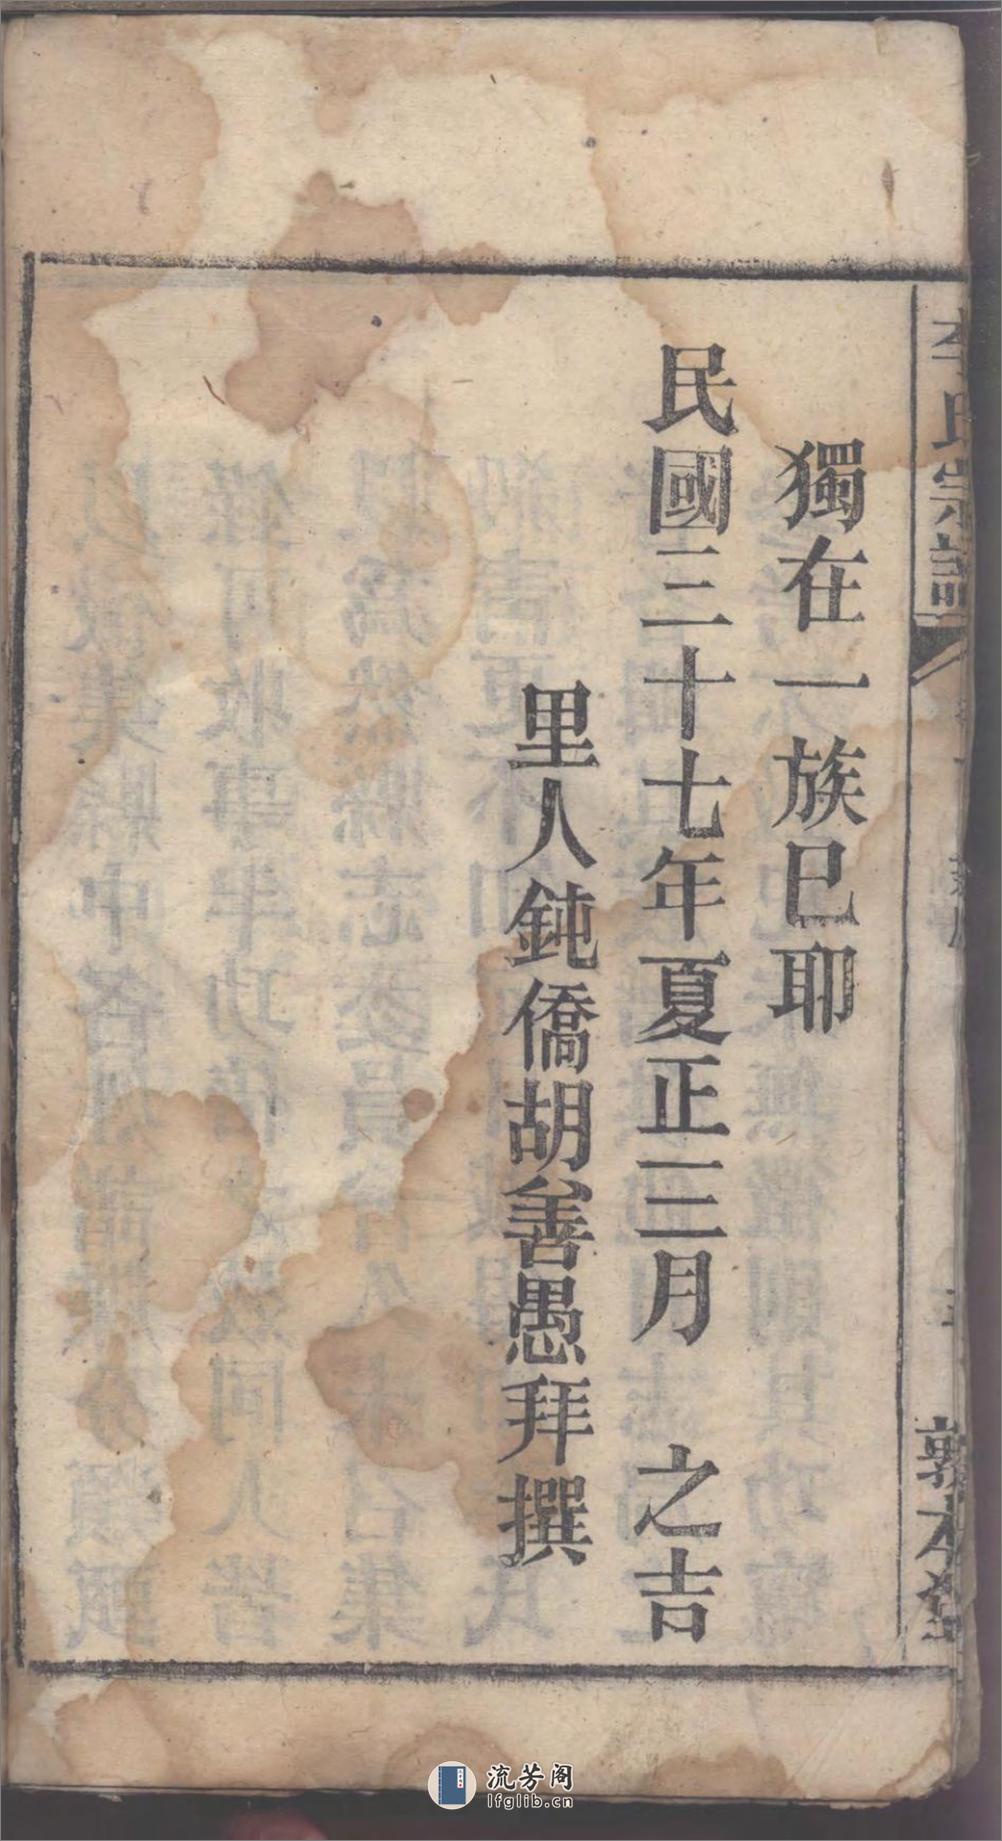 獨在一族巳耶
民國三十七年夏正三月　之吉
里人鈍僑胡善愚拜撰
氏宗譜
敦本堂
流芳阁
lfglib.cn